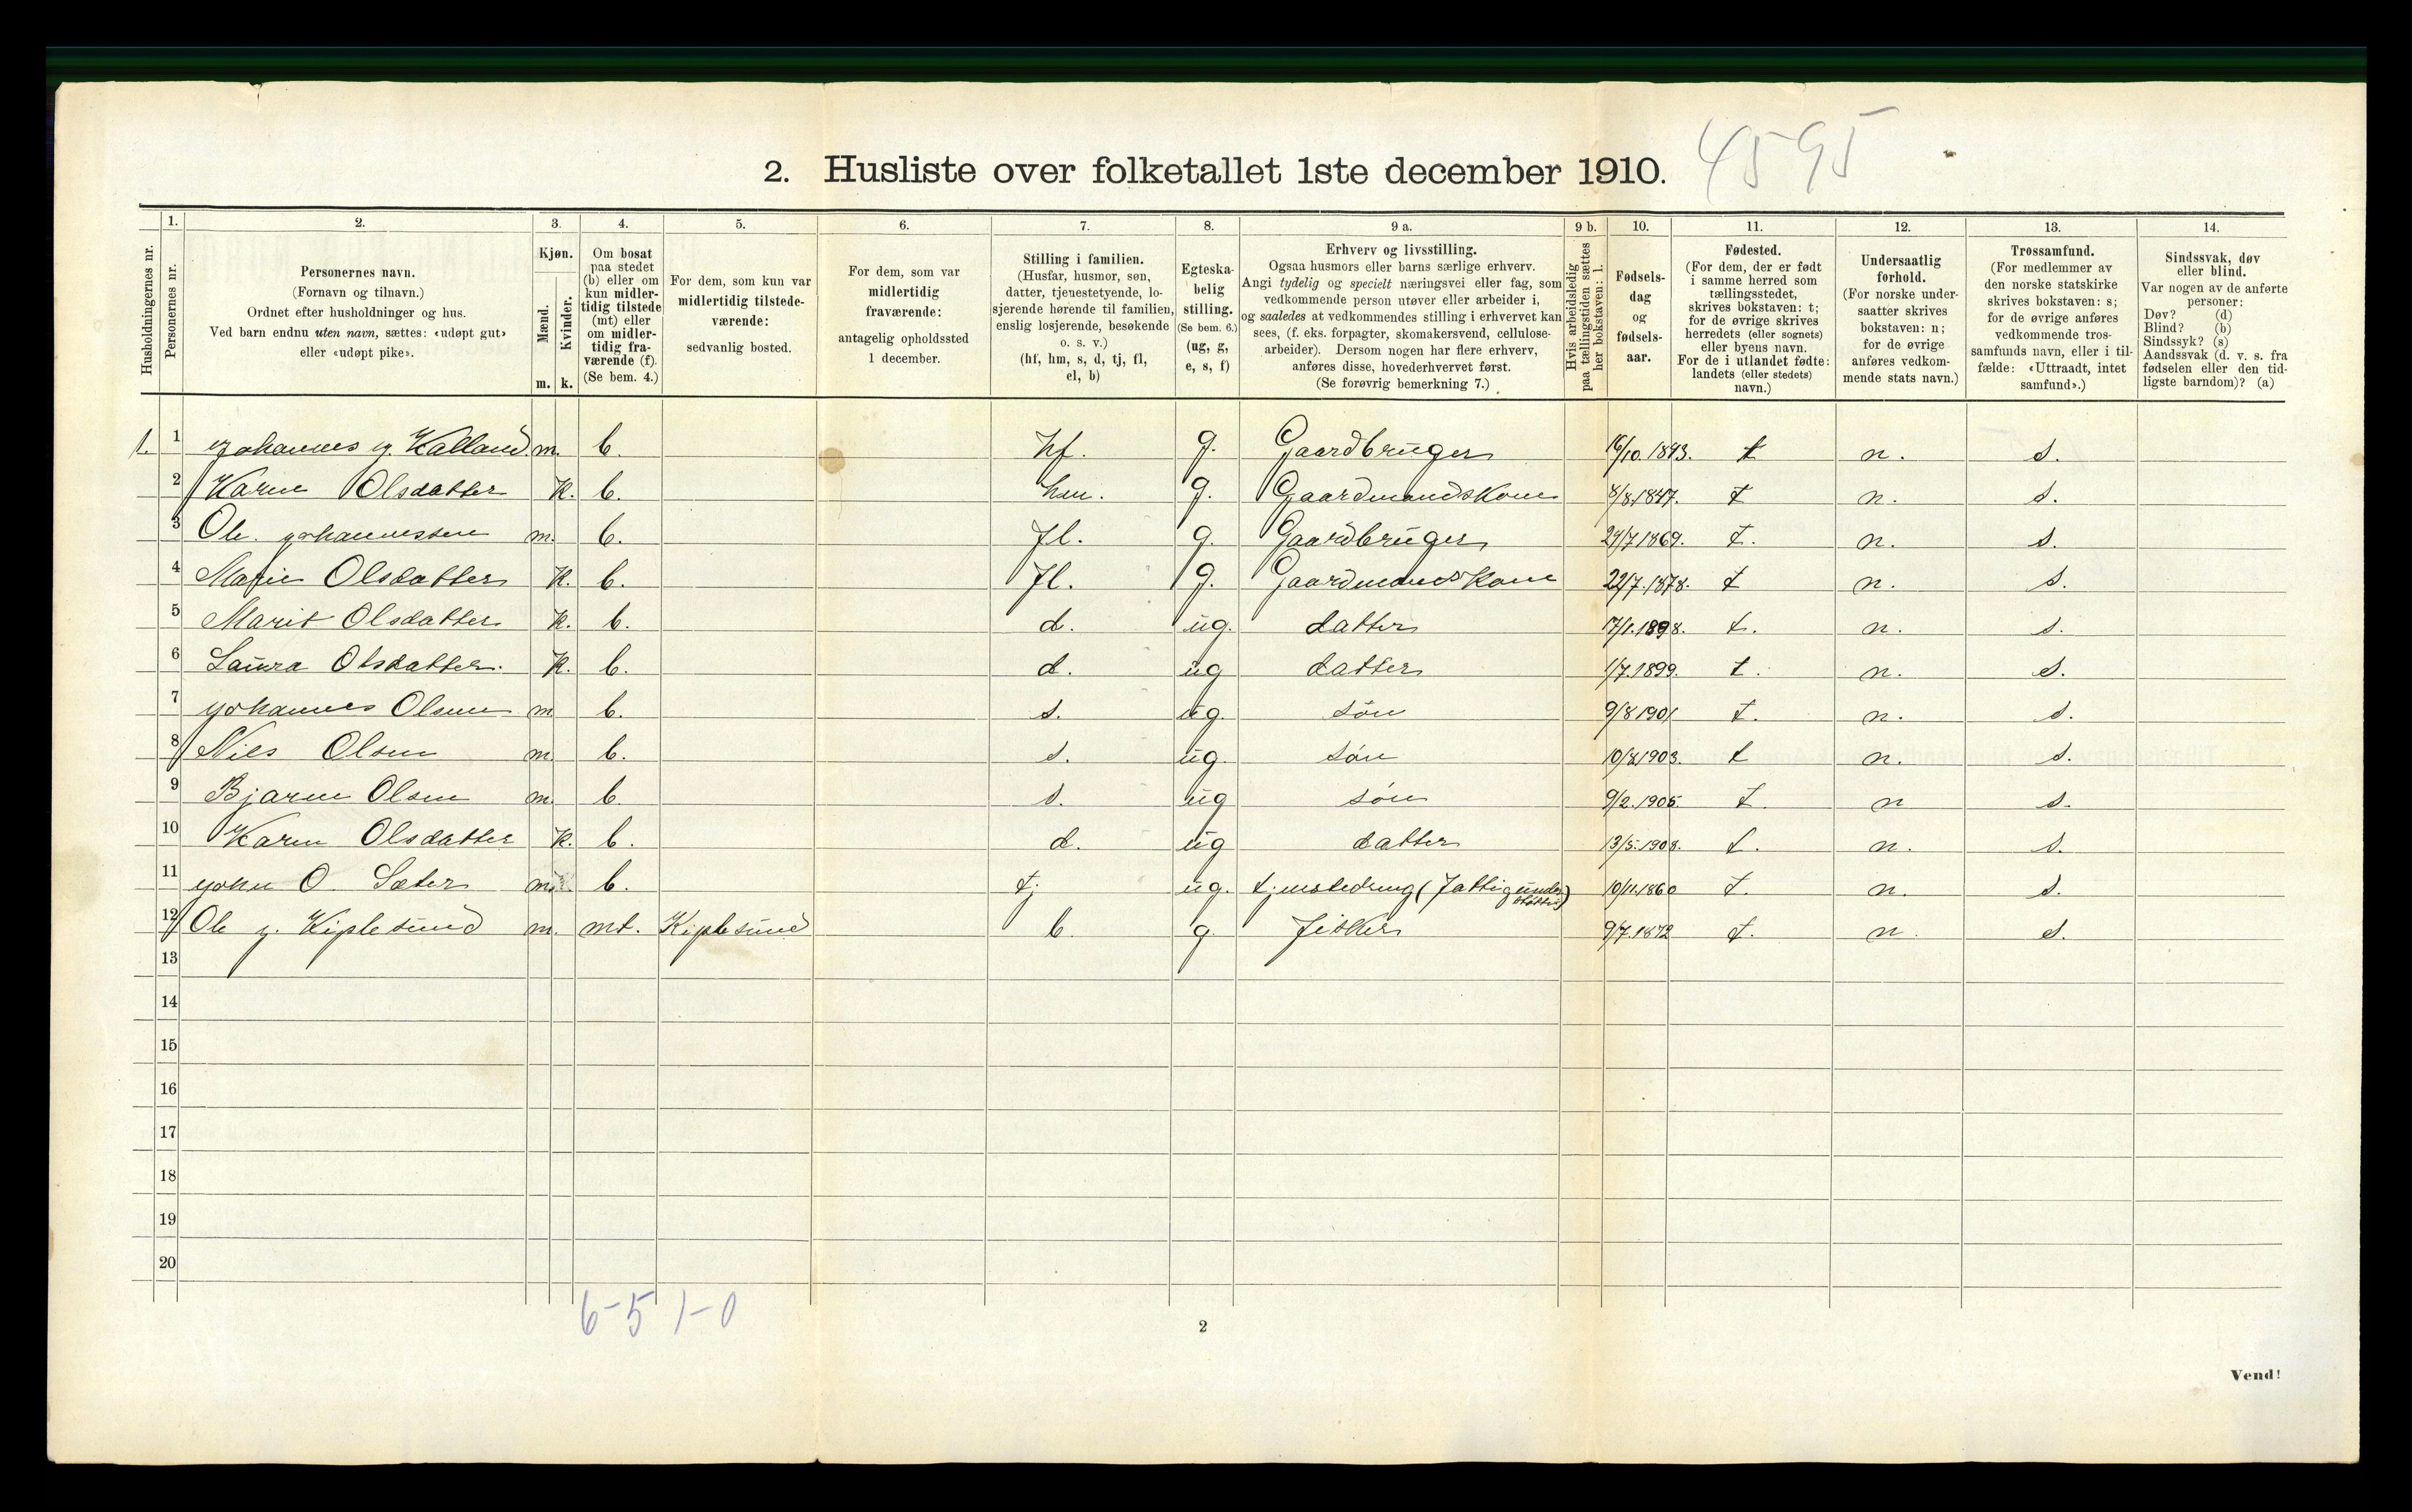 4595
2. Husliste over folketallet 1ste december 1910.
Husholdningernes nr.
1.
Personernes nr.
2.
Personernes navn.
(Fornavn og tilnavn.)
Ordnet efter husholdninger og hus.
Ved barn endnu uten navn, sættes: «udøpt gut»
eller «udøpt pike».
3.
Kjøn.
Mænd.
Kvinder.
m. k.
4.
Om bosat
paa stedet
(b) eller om
kun midler-
tidig tilstede
(mt) eller
om midler-
tidig fra-
værende (f).
(Se bem. 4.)
5.
For dem, som kun var
midlertidig tilstede-
værende:
sedvanlig bosted.
6.
For dem, som var
midlertidig
fraværende:
antagelig opholdssted
1 december.
7.
Stilling i familien.
(Husfar, husmor, søn,
datter, tjenestetyende, lo-
sjerende hørende til familien,
enslig losjerende, besøkende
o. s. v.)
(hf, hm, s, d, tj, fl,
el, b)
8.
Egteska-
belig
stilling.
(Se bem. 6.)
(ug, g,
e, s, f)
9 a.
Erhverv og livsstilling.
Ogsaa husmors eller barns særlige erhverv.
Angi tydelig og specielt næringsvei eller fag, som
vedkommende person utøver eller arbeider i,
og saaledes at vedkommendes stilling i erhvervet kan
sees, (f. eks. forpagter, skomakersvend, cellulose-
arbeider). Dersom nogen har flere erhverv,
anføres disse, hovederhvervet først.
(Se forøvrig bemerkning 7.)
9 b.
Hvis arbeidsledig
paa tællingstiden sættes
her bokstaven: l.
10.
Fødsels-
dag
og
fødsels-
aar.
11.
Fødested.
(For dem, der er født
i samme herred som
tællingsstedet,
skrives bokstaven: t;
for de øvrige skrives
herredets (eller sognets)
eller byens navn.
For de i utlandet fødte:
landets (eller stedets)
navn.)
12.
Undersaatlig
forhold.
(For norske under-
saatter skrives
bokstaven: n;
for de øvrige
anføres vedkom-
mende stats navn.)
13.
Trossamfund.
(For medlemmer av
den norske statskirke
skrives bokstaven: s;
for de øvrige anføres
vedkommende tros-
samfunds navn, eller i til-
fælde: «Uttraadt, intet
samfund».)
14.
Sindssvak, døv
eller blind.
Var nogen av de anførte
personer:
Døv? (d)
Blind? (b)
Sindssyk? (s)
Aandssvak (d. v. s. fra
fødselen eller den tid-
ligste barndom)? (a)
1. 1 Johannes J. Kalland m. b. hf. g. Gaardbruger 16/10.1843. t n. s.
2 Karen Olsdatter K. b. hm. g. Gaardmandskone 8/8.1847. t n. s.
3 Ole Johannessen m. b. fl. g. Gaardbruger 24/7 1869. t. n. s.
4 Marie Olsdatter K. b. fl. g. Gaardmandskone 22/7.1878. t n. s.
5 Marit Olsdatter K. b. d. ug. datter 17/1.1898. t. n. s.
6 Laura Olsdatter. K. b. d. ug datter 1/7.1899. t. n. s.
7 Johannes Olsen m b. s. ug. søn 9/8 1901 t. n. s.
8 Nils Olsen m b. s. ug. søn 10/8.1903. t n. s.
9 Bjarne Olsen m. b. s. ug søn 9/2.1905. t. n s.
10 Karen Olsdatter K. b. d. ug datter 13/5.1908. t. n. s.
11 John O. Sæter m. b. tj ug. tjenstedreng (Fattigunderstøttet) 10/11.1860 t. n. s.
12 Ole J. Kiplesund m. mt. Kiplesund b g. Fisker 9/7.1872 t. n. s.
13
14
15
16
17
18
19
20
6-5 1-0
2
Vend!